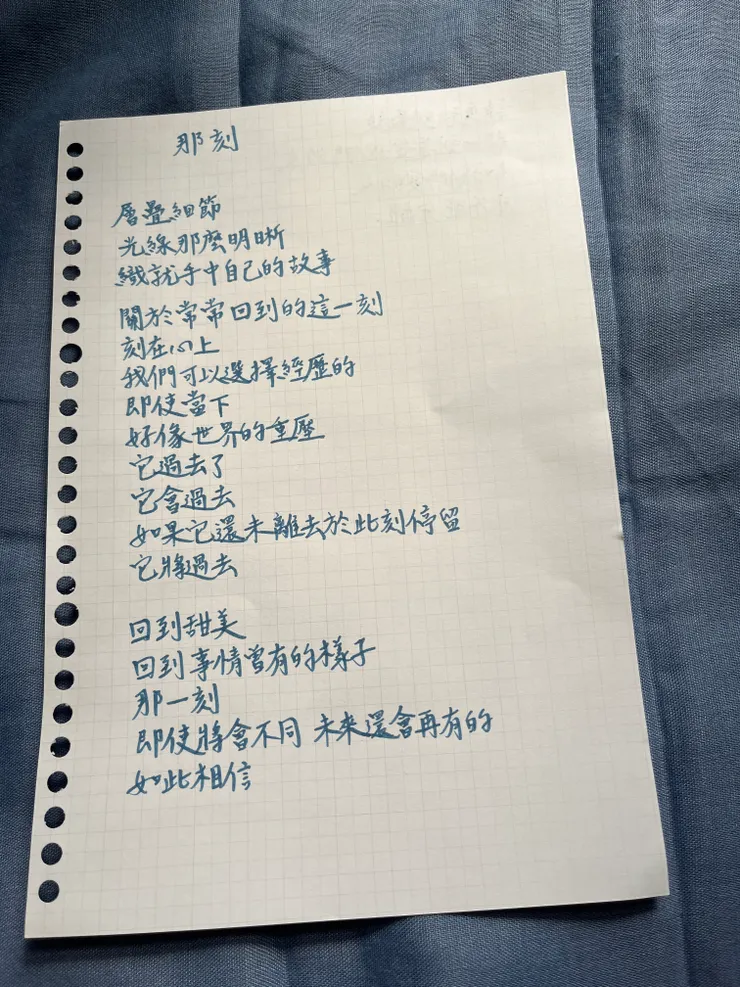 那刻
層疊細節
光線那麼明晰
織就手中自己的故事
關於常常回到的這一刻
刻在心上
我們可以選擇經歷的
即使當下
好像世界的重壓
它過去了
它會過去
如果它還未離去於此刻停留
它將過去
回到甜美
回到事情曾有的樣子
那一刻
即使將會不同 未來還會再有的
如此相信